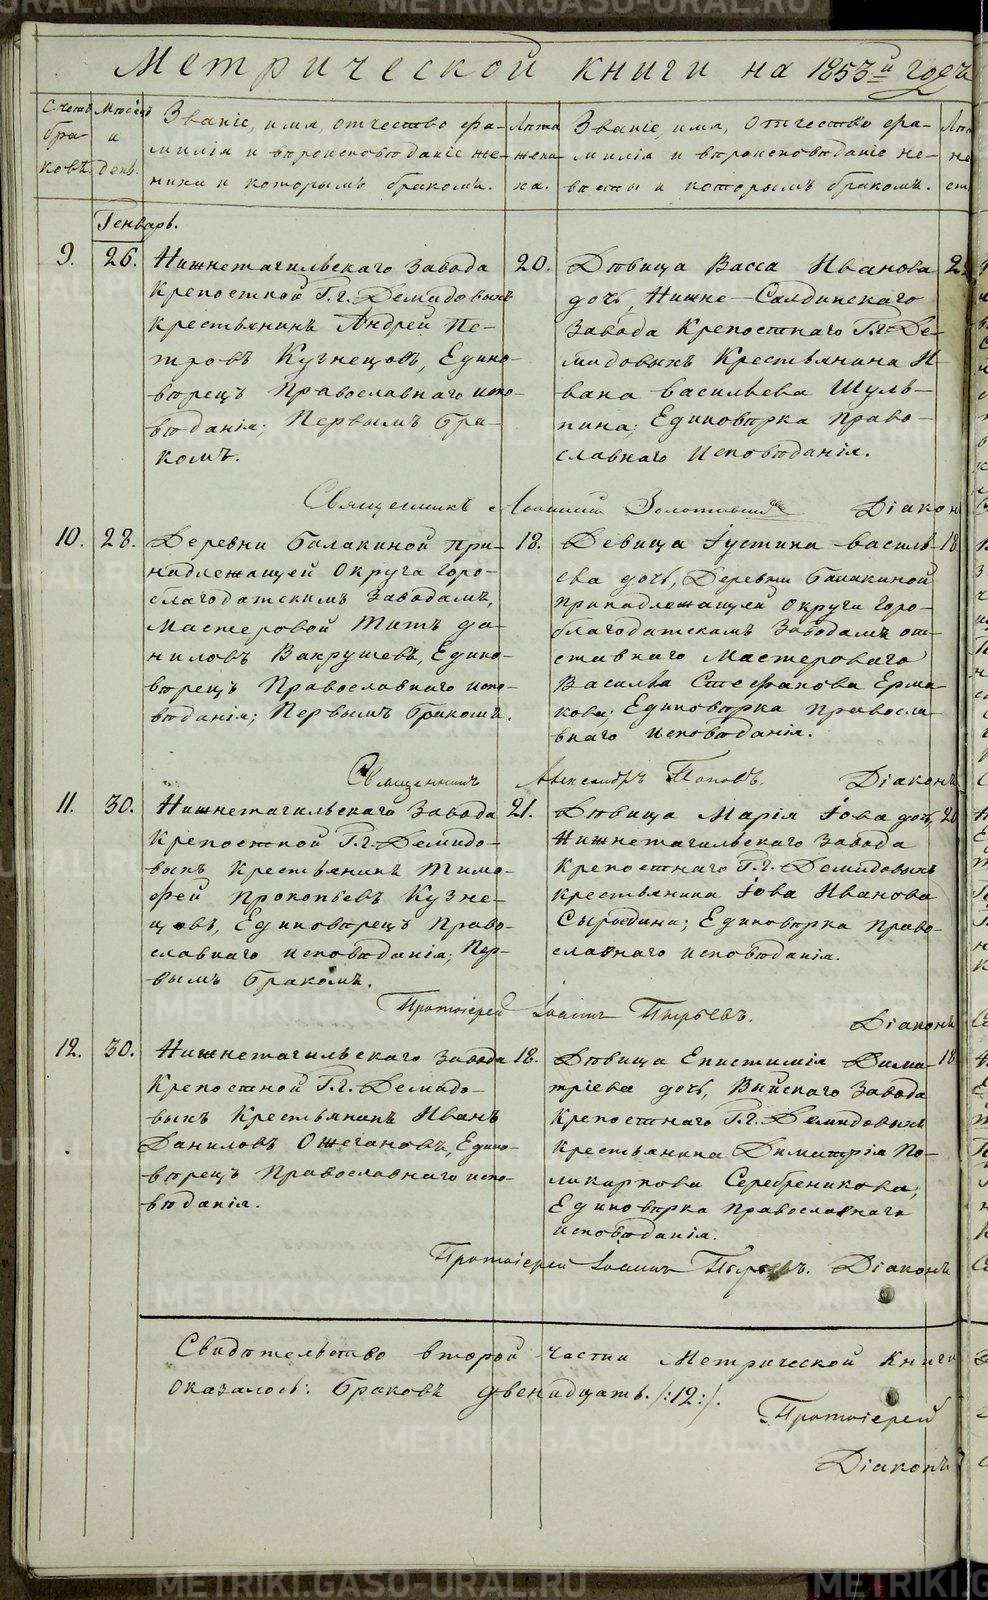 Метрической книги на 1853й годъ
Счетъ браковъ.
Месяцъ и день.
Званіе, имя, отчество фа-
милія и вѣроисповѣданіе же-
ниха и которымъ бракомъ.
Лѣта
жени-
ха.
Званіе, имя, отчество фа-
милія и вѣроисповѣданіе не-
вѣсты и которымъ бракомъ.
Генварь.
9. 26.
Нижнетагильскаго завода
Крепостной Г.г. Демидовыхъ
крестьянинъ Андрей Пе-
тровъ Кузнецовъ, Едино-
вѣрецъ Православнаго испо-
вѣданія; Первымъ бра-
комъ.
20.
Дѣвица Васса Иванова
дочь, Нижне-Салдинскаго
завода Крепостнаго Г.г. Де-
мидовыхъ Крестьянина И-
вана Васильева Шуль-
пина; Единовѣрка право-
славнаго Исповѣданія.
Священникъ Іоанній Діаконъ
10. 28.
Деревни Балакиной при-
надлежащей Округа Горо-
благодатскимъ Заводамъ,
Мастеровой Титъ Да-
ниловъ Вахрушевъ, Едино-
вѣрецъ Православнаго испо-
вѣданія; Первымъ бракомъ.
18.
Девица Іустина Василь-
ева дочь, Деревни Балакиной
принадлежащей Округи Горо-
благодатскимъ Заводамъ от-
ставнаго Мастероваго
Василья Стефанова Ерма-
кова; Единовѣрка правосла-
внаго исповѣданія.
18
Священникъ Александръ Поповъ. Діаконъ
11. 30.
Нижнетагильскаго Завода
Крепостной Г.г. Демидо-
выхъ Крестьянинъ Тимо-
фей Прокопьевъ Кузне-
цовъ, Единовѣрецъ Право-
славнаго исповѣданія; Пер-
вымъ бракомъ.
21.
Дѣвица Марія Іова дочь,
Нижнетагильскаго Завода
Крепостнаго Г.г. Демидовыхъ
крестьянина Іова Иванова
Сыродина; Единовѣрка право-
славнаго исповѣданія.
20
Протоіерей Іоаннъ Пырьевъ. Діаконъ
12. 30.
Нижнетагильскаго завода
Крепостной Г.г. Демидо-
выхъ Крестьянинъ Иванъ
Даниловъ Ожегановъ, Едино-
вѣрецъ Православнаго испо-
вѣданія.
18.
Дѣвица Епистимія Дими-
тріева дочь, Выйскаго Завода
Крепостнаго Г.г. Демидовыхъ
Крестьянина Димитрія По-
ликарпова Серебреникова;
Единовѣрка православнаго
исповѣданія.
18
Протоіерей Іоаннъ Пырьевъ. Діаконъ
Свидѣтельство второй части Метрической книги
оказалось: браковъ двенадцать. /:12:/.
Протоіерей
Діаконъ
METRIKI.GASO-URAL.RU